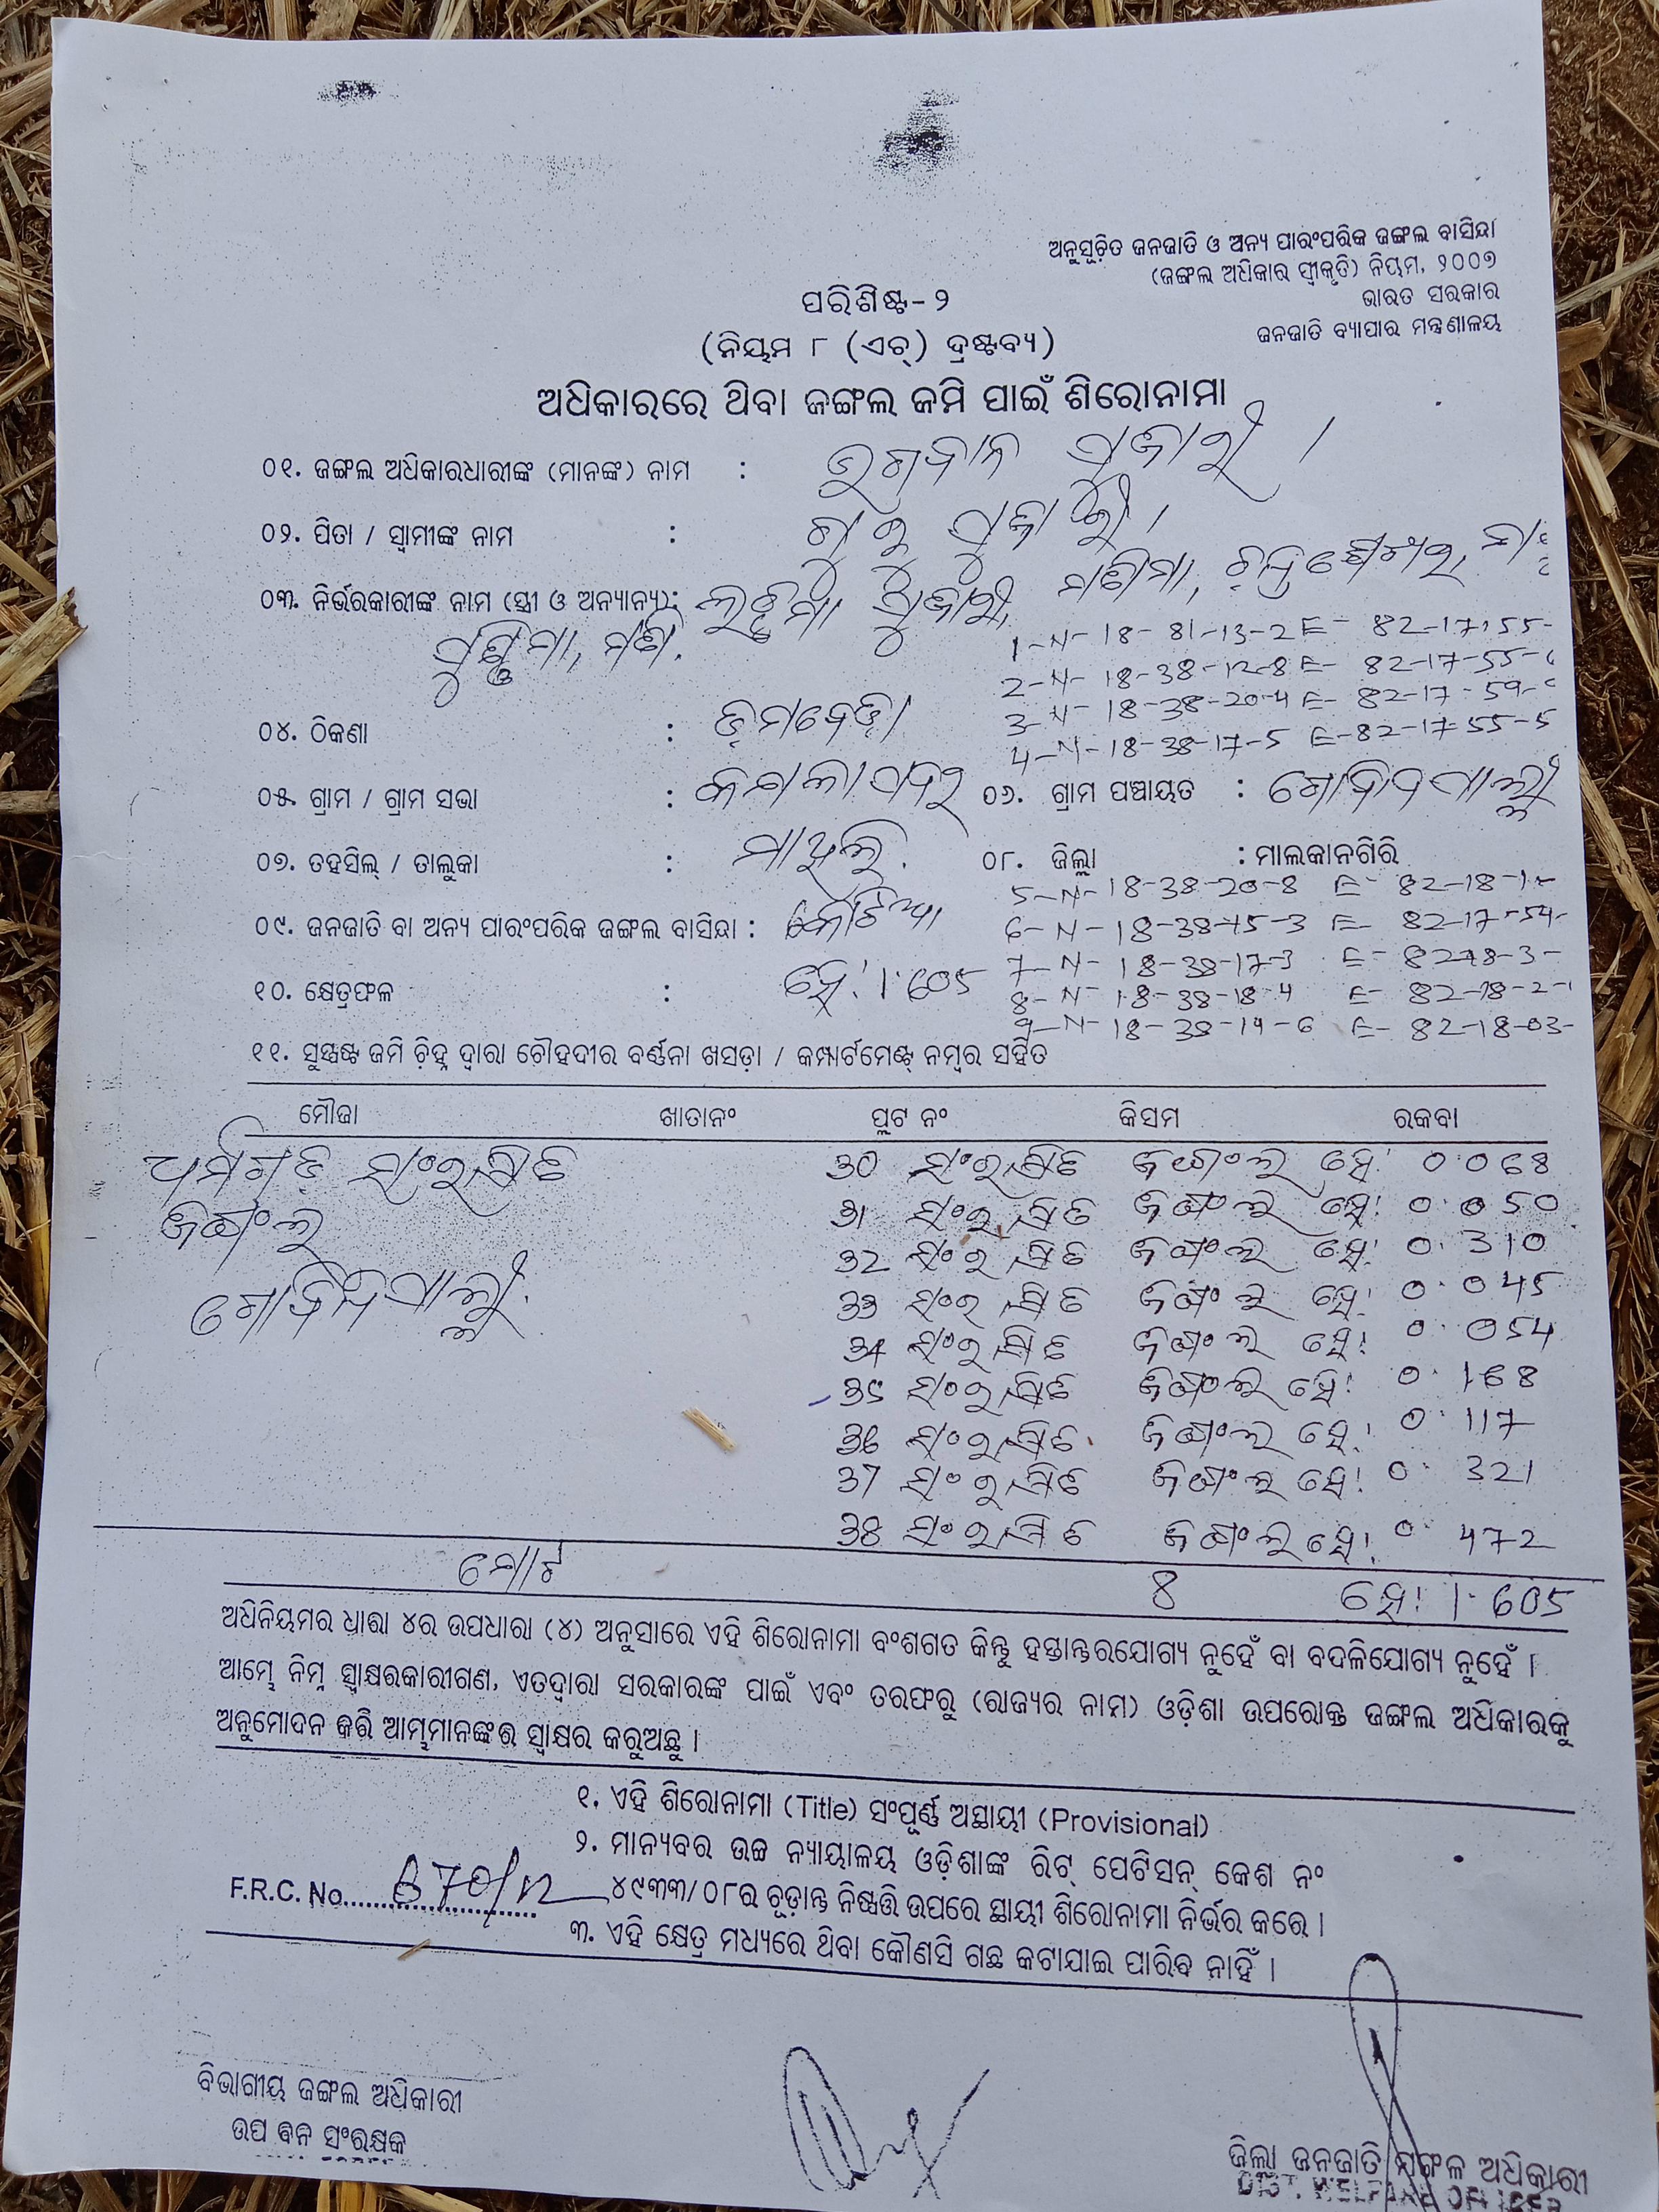 ଅନୁସୂଚିତ ଜନଜାତି ଓ ଅନ୍ୟ ପାରଂପରିକ ଜଙ୍ଗଲ ବାସିନ୍ଦା
(ଜଙ୍ଗଲ ଅଧିକାର ସ୍ୱୀକୃତି) ନିୟମ, ୨୦୦୭
ଭାରତ ସରକାର
ଜନଜାତି ବ୍ୟାପାର ମନ୍ତ୍ରଣାଳୟ
ପରିଶିଷ୍ଟ-୨
(ନିୟମ ୮ (ଏଚ୍) ଦ୍ରଷ୍ଟବ୍ୟ)
ଅଧିକାରରେ ଥିବା ଜଙ୍ଗଲ ଜମି ପାଇଁ ଶିରୋନାମା
୦୧. ଜଙ୍ଗଲ ଅଧିକାରଧାରୀଙ୍କ (ମାନଙ୍କ) ନାମ : ଭଗବାନ ପୂଜାରୀ ।
୦୨. ପିତା / ସ୍ୱାମୀଙ୍କ ନାମ : ଗୁରୁ ପୂଜାରୀ ।
୦୩. ନିର୍ଭରକାରୀଙ୍କ ନାମ (ସ୍ତ୍ରୀ ଓ ଅନ୍ୟାନ୍ୟ): ପୂଜାରୀ,
2-N-18-38-12-8 E- 82-17-55-
3-N-18-38-20-4 E- 82-17-59-
4-N-18-38-17-5 E-82-17-55-5
୦୪. ଠିକଣା :
୦୫. ଗ୍ରାମ / ଗ୍ରାମ ସଭା : ୦୬. ଗ୍ରାମ ପଞ୍ଚାୟତ : ଗୋବିନ୍ଦପାଲ୍ଲୀ
୦୭. ତହସିଲ୍ / ତାଲୁକା : ମାଥିଲି. ୦୮. ଜିଲ୍ଲା : ମାଲକାନଗିରି
5-N-18-38-20-8 E- 82-18-1-
୦୯. ଜନଜାତି ବା ଅନ୍ୟ ପାରଂପରିକ ଜଙ୍ଗଲ ବାସିନ୍ଦା :
6-N-18-38-15-3 E- 82-17-54-
7-N-18-38-17-3 E- 82-18-3-
୧୦. କ୍ଷେତ୍ରଫଳ : ହେ! 1.605
8-N-18-38-18-4 E- 82-18-2-
9-N-18-38-19-6 E- 82-18-03-
୧୧. ସୁସ୍ପଷ୍ଟ ଜମି ଚିହ୍ନ ଦ୍ୱାରା ଚୌହଦୀର ବର୍ଣ୍ଣନା ଖସଡ଼ା / କମ୍ପାର୍ଟମେଣ୍ଟ ନମ୍ବର ସହିତ
ମୌଜା ଖାତାନଂ ପ୍ଲଟ ନଂ କିସମ ରକବା
ଧର୍ମଗଡ଼ ସଂରକ୍ଷିତ 30 ସଂରକ୍ଷିତ ଜଙ୍ଗଲ ହେ! 0.068
ଜଙ୍ଗଲ 31 ସଂରକ୍ଷିତ ଜଙ୍ଗଲ ହେ! 0.050
ଗୋବିନ୍ଦପାଲ୍ଲୀ. 32 ସଂରକ୍ଷିତ ଜଙ୍ଗଲ ହେ! 0.310
33 ସଂରକ୍ଷିତ ଜଙ୍ଗଲ ହେ! 0.045
34 ସଂରକ୍ଷିତ ଜଙ୍ଗଲ ହେ! 0.054
35 ସଂରକ୍ଷିତ ଜଙ୍ଗଲ ହେ! 0.168
36 ସଂରକ୍ଷିତ ଜଙ୍ଗଲ ହେ! 0.117
37 ସଂରକ୍ଷିତ ଜଙ୍ଗଲ ହେ! 0.321
38 ସଂରକ୍ଷିତ ଜଙ୍ଗଲ ହେ! 0.472
ମୋଟ 8 ହେ! 1.605
ଅଧିନିୟମର ଧାରା ୪ର ଉପଧାରା (୪) ଅନୁସାରେ ଏହି ଶିରୋନାମା ବଂଶଗତ କିନ୍ତୁ ହସ୍ତାନ୍ତରଯୋଗ୍ୟ ନୁହେଁ ବା ବଦଳିଯୋଗ୍ୟ ନୁହେଁ ।
ଆମ୍ଭେ ନିମ୍ନ ସ୍ୱାକ୍ଷରକାରୀଗଣ, ଏତଦ୍ୱାରା ସରକାରଙ୍କ ପାଇଁ ଏବଂ ତରଫରୁ (ରାଜ୍ୟର ନାମ) ଓଡ଼ିଶା ଉପରୋକ୍ତ ଜଙ୍ଗଲ ଅଧିକାରକୁ
ଅନୁମୋଦନ କରି ଆମ୍ଭମାନଙ୍କର ସ୍ୱାକ୍ଷର କରୁଅଛୁ ।
୧. ଏହି ଶିରୋନାମା (Title) ସଂପୂର୍ଣ୍ଣ ଅସ୍ଥାୟୀ (Provisional)
୨. ମାନ୍ୟବର ଉଚ୍ଚ ନ୍ୟାୟାଳୟ ଓଡ଼ିଶାଙ୍କ ରିଟ୍ ପେଟିସନ୍ କେଶ ନଂ
F.R.C. No.......... ୪୯୩୩/୦୮ର ଚୂଡ଼ାନ୍ତ ନିଷ୍ପତ୍ତି ଉପରେ ସ୍ଥାୟୀ ଶିରୋନାମା ନିର୍ଭର କରେ ।
୩. ଏହି କ୍ଷେତ୍ର ମଧ୍ୟରେ ଥିବା କୌଣସି ଗଛ କଟାଯାଇ ପାରିବ ନାହିଁ ।
ବିଭାଗୀୟ ଜଙ୍ଗଲ ଅଧିକାରୀ
ଉପ ବନ ସଂରକ୍ଷକ
ଜିଲ୍ଲା ଜନଜାତି ମଙ୍ଗଳ ଅଧିକାରୀ
DIST. WELFARE OFFICER